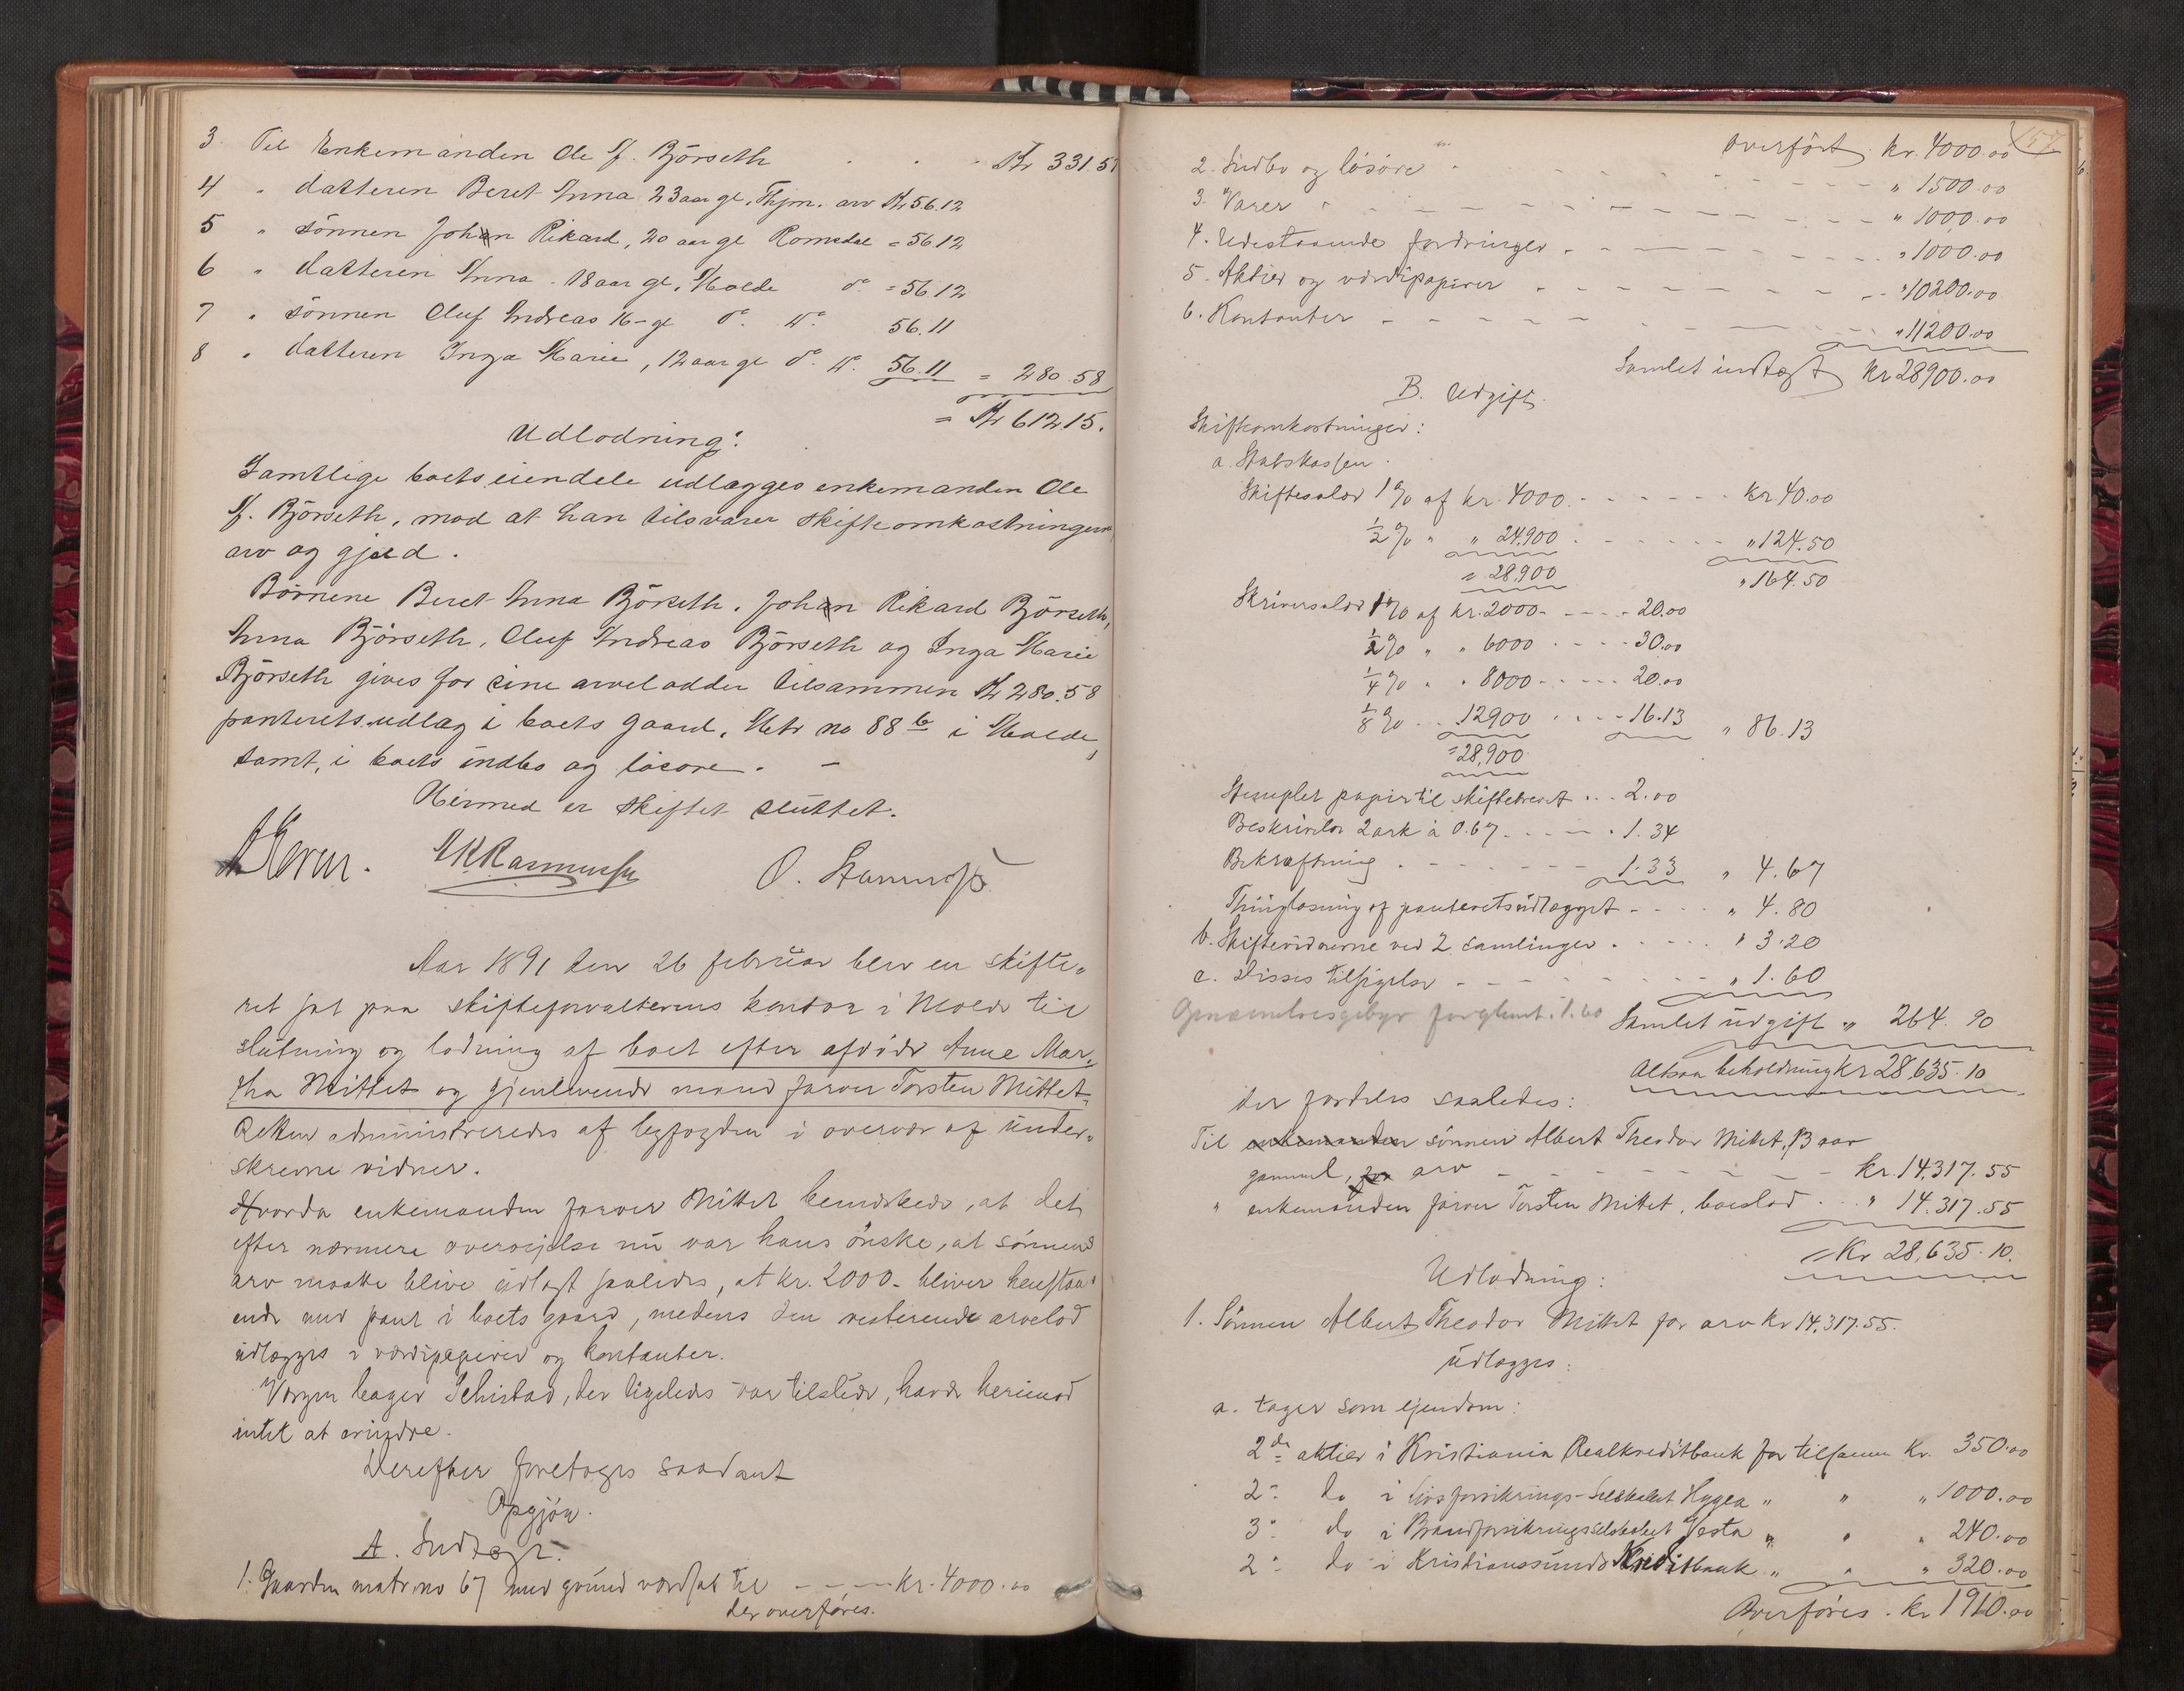 3 Til Enkemanden Ole J. Björseth . . . Kr 331.57
4 " datteren Beret Anna 23 aar gl. Thjm. arv Kr 56.12
5 " sönnen Johan Rikard, 20 aar gl Romsdal = 56.12
6 " datteren Anna 18 aar gl. Molde do = 56.12
7 " sönnen Oluf Andreas 16 - gl do. do. 56.11
8 " datteren Inga Marie, 12 aar gl do. do. 56.11 = 280.58
= Kr 612.15.
Udlodning:
Samtlige boets eiendele udlægges enkemanden Ole
J. Björseth, mod at han tilsvarer skifteomkostningerne
arv og gjæld.
Börnene Beret Anna Björseth, Johan Rikard Björseth,
Anna Björseth, Oluf Andreas Björseth og Inga Marie
Björseth gives for sine arvelodder tilsammen Kr 280.58
panterets udlæg i boets gaard, Matr no 88 b i Molde,
samt, i boets indbo og lösöre. –
Hermed er skiftet sluttet.
O. Stamnes
Aar 1891 den 26 februar blev en skifte-
ret sat paa skifteforvalterens kontor i Molde til
slutning og lodning af boet efter afdöde Anne Mar-
tha Mittet og gjenlevende mand farver Torsten Mittet.
Retten administreredes af byfogden i overvær af under-
skrevne vidner.
Hvorda enkemanden farver Mittet bemærkede, at det
efter nærmere overveielse nu var hans önske, at sönnens
arv maatte blive udlagt saaledes, at kr. 2000 - bliver henstaa-
ende med pant i boets gaard, medens den resterende arvelod
udlægges i værdipapirer og kontanter.
Værgen bager Schistad, der ligeledes var tilstede, havde herimod
intet at erindre.
Derefter foretoges saadant
Opgjör.
A. Indtægt.
1. Gaarden matr. no 67 med grund værdsat til - - - kr. 4000.00
der overföres.
overfört kr. 4000.00
2. Indbo og lösöre - - - " 1500.00
3. Varer - - - " 1000.00
4. Udestaaende fordringer - - - " 1000.00
5. Aktier og værdipapirer - - - " 10200.00
6. Kontanter - - - " 11200.00
Samlet indtægt kr 28900.00
B. Udgift.
Skifteomkostninger:
a. Statskassen.
Skiftesalær 1 % af kr. 4000. - - - kr. 40.00
1/2 % " " 24,900 - - - " 124.50
= 28,900 " 164.50
Skriversalær 1 % af kr. 2000 - - - 20.00
1/2 % " " 6000 - - - 30.00
1/4 % " " 8000 - - - 20.00
1/8 % - - 12900 - - - 16.13 " 86.13
= 28,900
Stemplet papir til skiftebrevet . . . 2.00
Beskrivelse 2 ark à 0.67 - - - 1.34
Bekræftning - - - 1.33 " 4.67
Thinglæsning af panteretsudlægget - - - " 4.80
b. Skiftevidnerne ved 2 samlinger - - - " 3.20
c. Disses tilsigelse - - - " 1.60
forglemt. 1.60
Samlet udgift " 264.90
Altsaa beholdning kr 28,635.10
der fordeles saaledes:
Til enkemanden sönnen Albert Theodor Mittet, 13 aar
gammel, arv - - - kr. 14,317.55
" enkemanden farver Torsten Mittet, boeslod . . " 14,317.55
= Kr 28,635.10.
Udlodning:
1. Sönnen Albert Theodor Mittet for arv kr 14,317.55.
udlægges:
a. tager som ejendom:
2 de aktier i Kristiania Realkreditbank for tilsamm Kr. 350.00
2 - do i Livsforsikrings-Selskabet Hygea " " " 1000.00
3 - do i Brandforsikringsselskabet Vesta " " " 240.00
2 - do i Kristianssunds Kreditbank " " " 320.00
Overföres . kr 1910.00